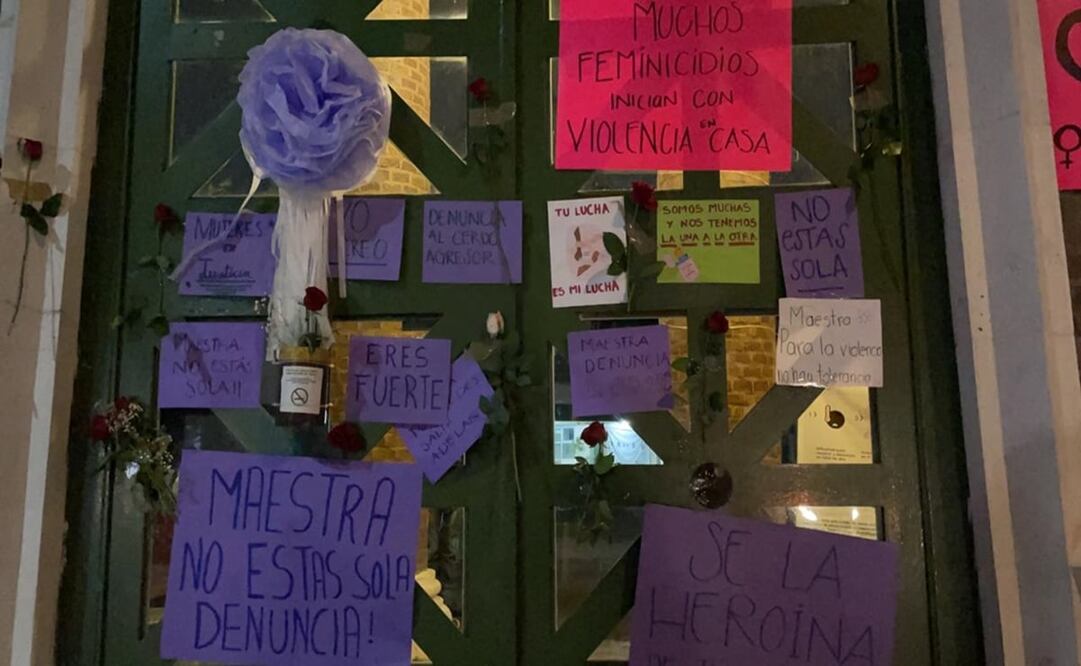 MUCHOS
FEMINICIDIOS
INICIAN CON
VIOLENCIA EN CASA
MUJERES
EN
YO
CREO
DENUNCIA
AL CERDO
AGRESOR
TU LUCHA
ES MI LUCHA
SOMOS MUCHAS
Y NOS TENEMOS
LA UNA A LA OTRA
NO
ESTAS
SOLA
MAESTRA
NO ESTÁS
SOLA!!
ERES
FUERTE
MAESTRA
DENUNCIA
Maestra
Para la violencia
no hay tolerancia
MAESTRA
NO ESTAS SOLA
DENUNCIA!
SE LA
HEROÍNA